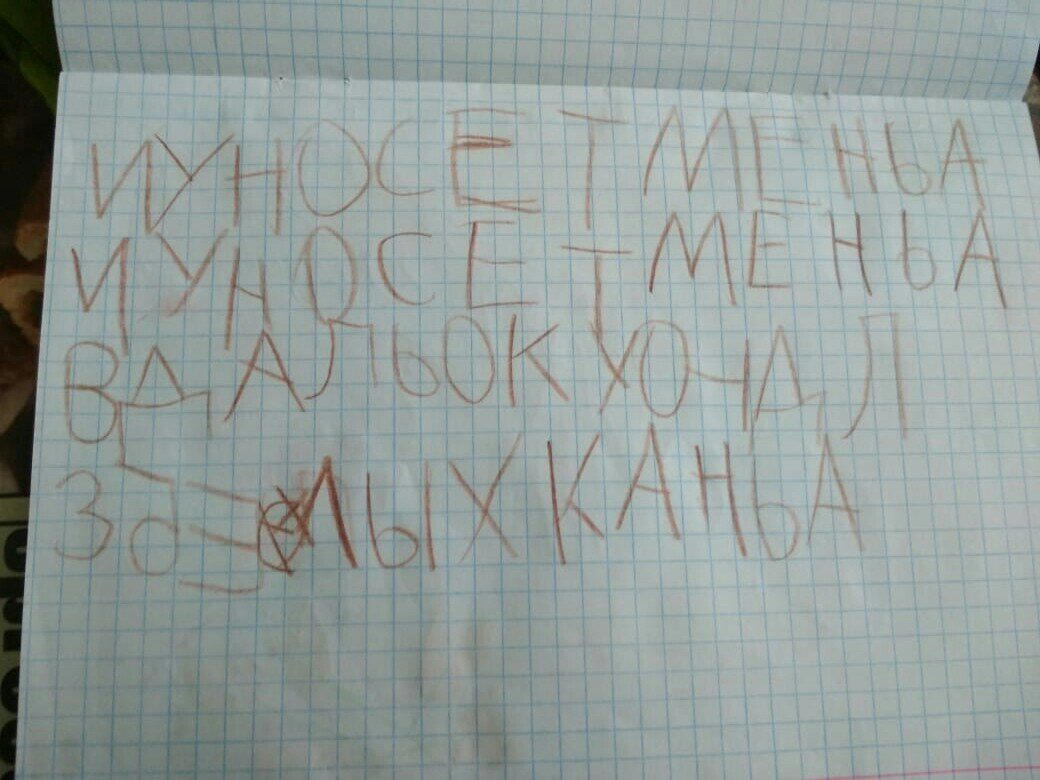 И УНОСЕТ МЕНЬА
И УНОСЕТ МЕНЬА
ВДАЛЬОКХОЧДЛ
КАНЬА